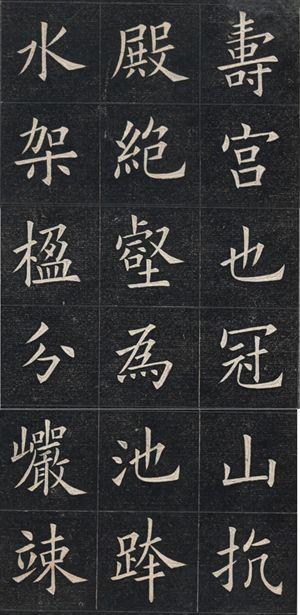 壽宮也冠山抗
殿絶壑為池跨
水架楹分巖竦